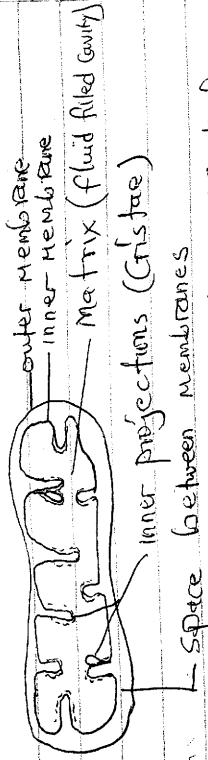 outer membrane
inner membrane
Matrix (fluid filled cavity)
inner projections (Cristae)
space between membranes